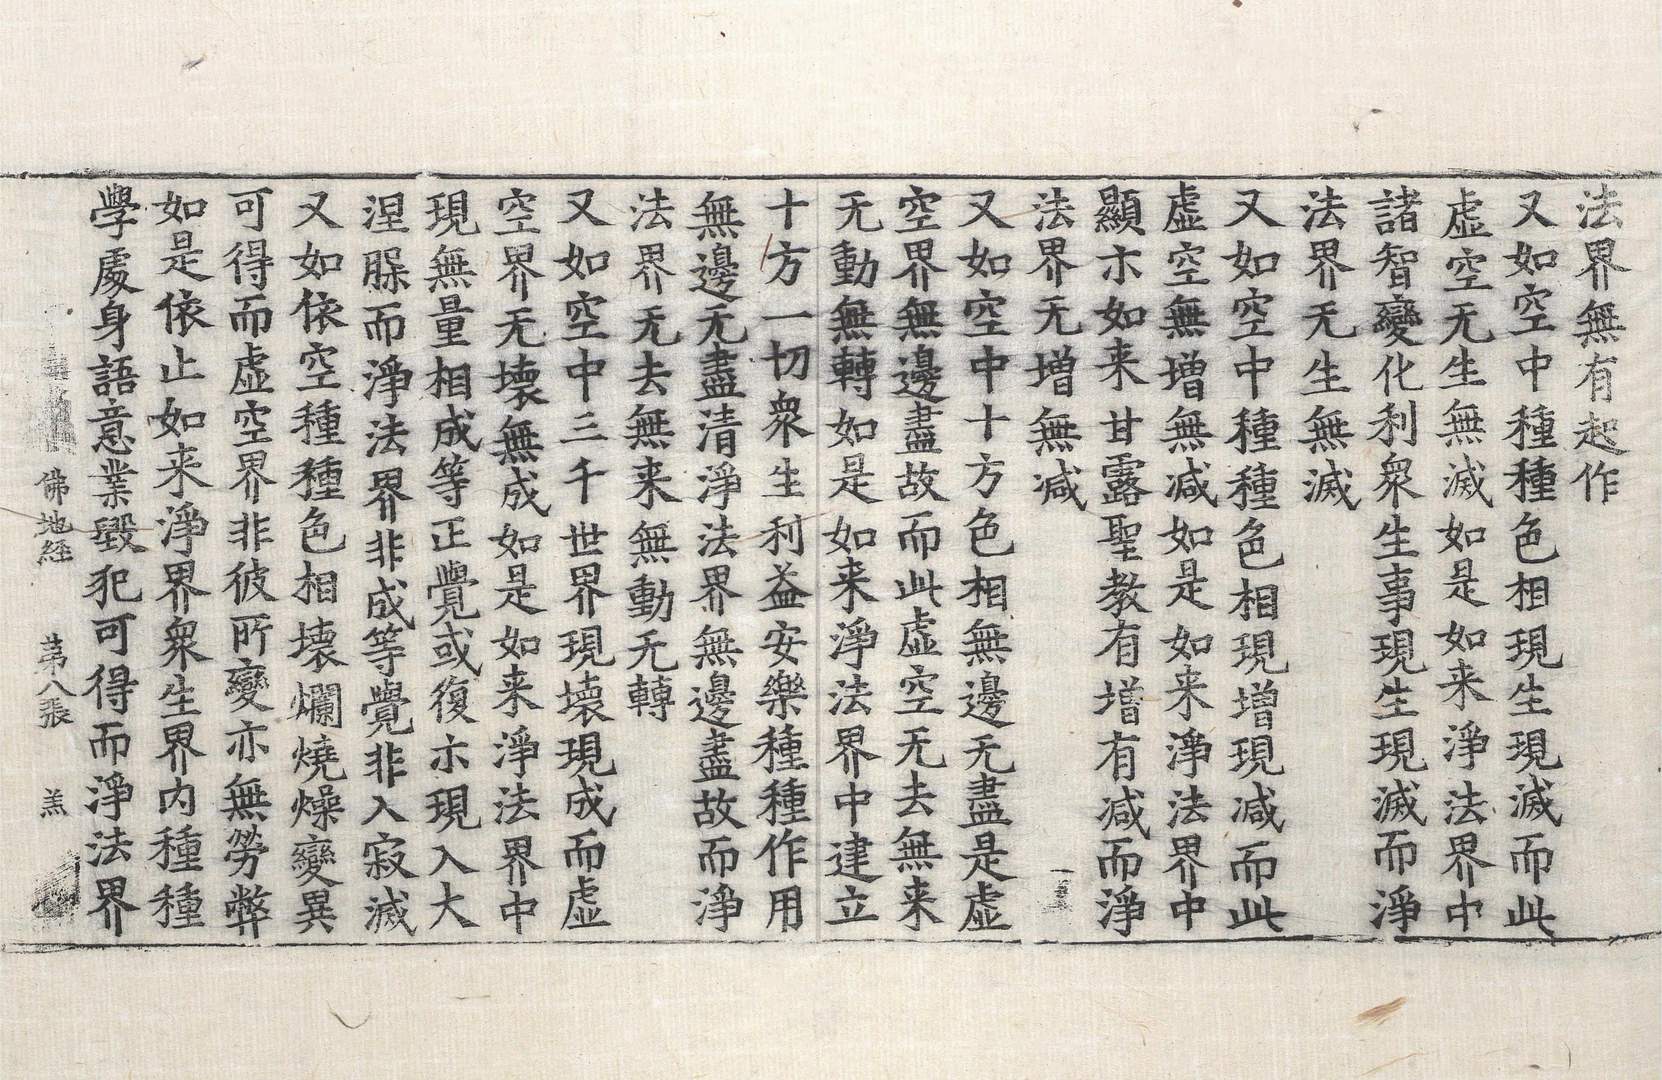 法界無有起作
又如空中種種色相現生現滅而此
虛空无生無滅如是如来淨法界中
諸智變化利衆生事現生現滅而淨
法界无生無滅
又如空中種種色相現增現減而此
虛空無增無減如是如来淨法界中
顯示如来甘露聖教有增有減而淨
法界无增無減
又如空中十方色相無邊无盡是虛
空界無邊盡故而此虛空无去無来
无動無轉如是如来淨法界中建立
十方一切衆生利益安樂種種作用
無邊无盡清淨法界無邊盡故而淨
法界无去無来無動无轉
又如空中三千世界現壞現成而虛
空界无壞無成如是如来淨法界中
現無量相成等正覺或復示現入大
涅槃而淨法界非成等覺非入寂滅
又如依空種種色相壞爛燒燥變異
可得而虛空界非彼所變亦無勞弊
如是依止如来淨界衆生界内種種
學處身語意業毀犯可得而淨法界
佛地經 苐八張 羔